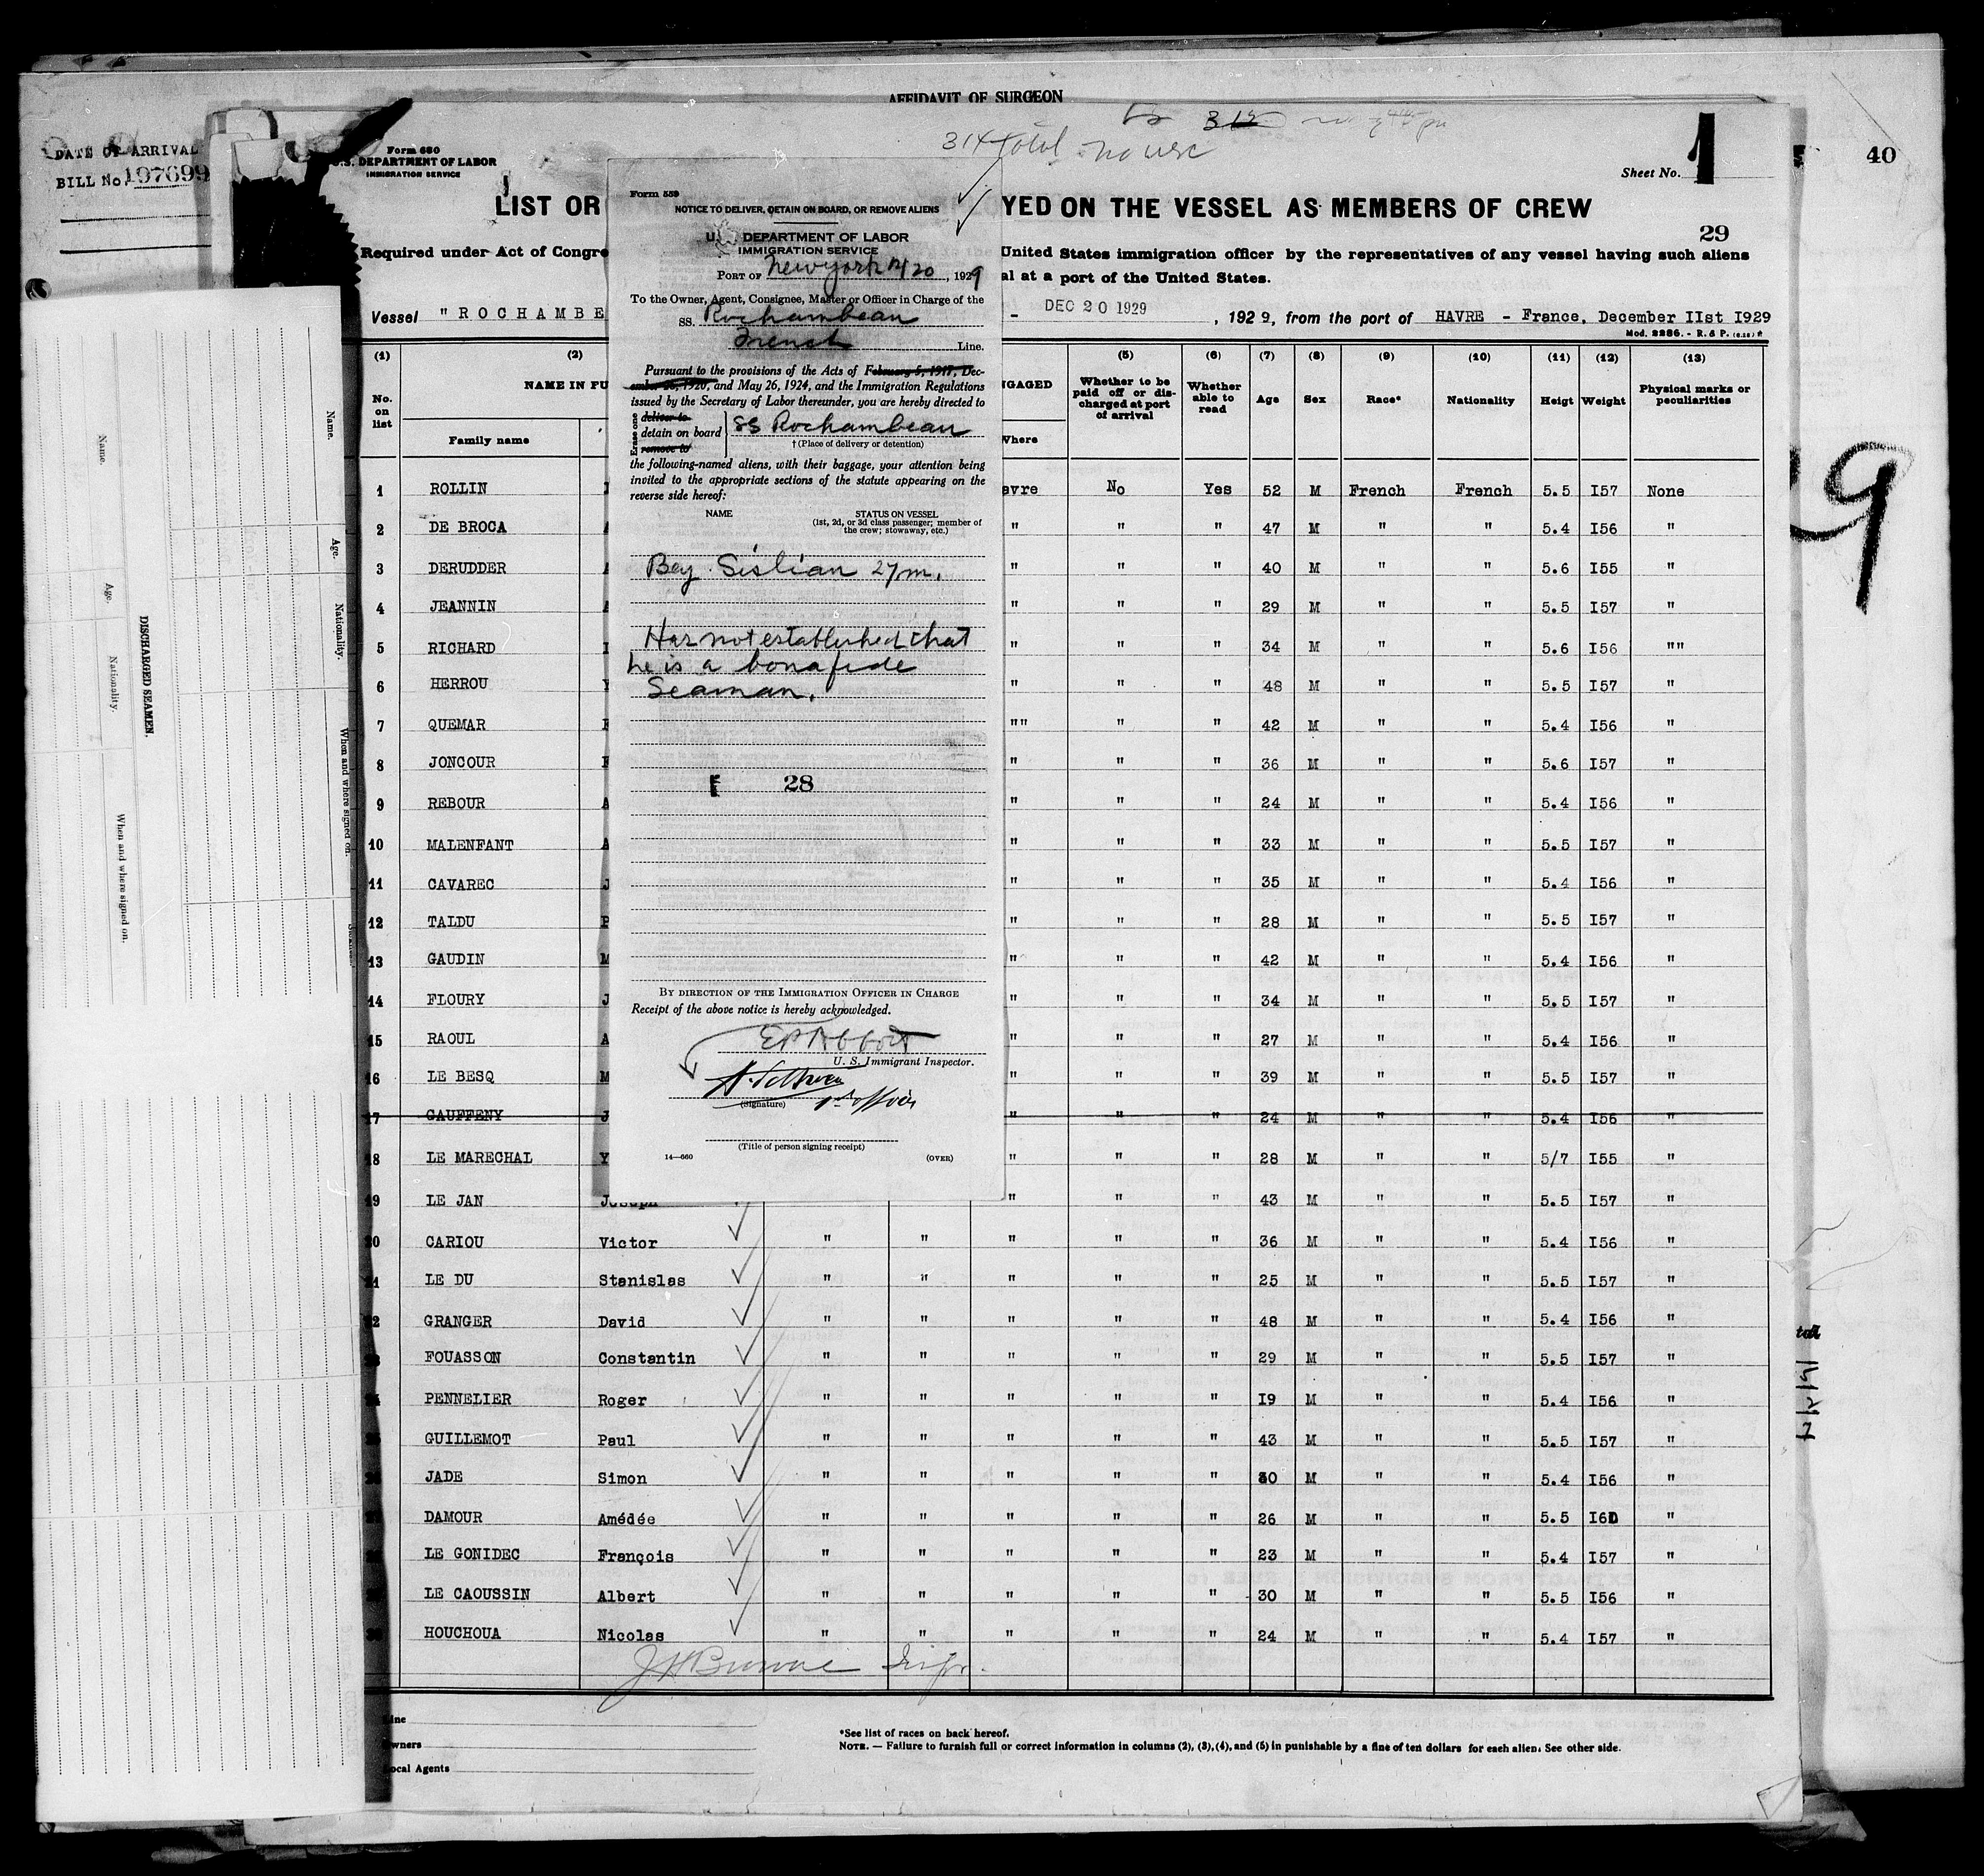 AFFIDAVIT OF SURGEON
DATE OF ARRIVAL
BILL No. 197699
Form 680
U.S. DEPARTMENT OF LABOR
IMMIGRATION SERVICE
312
314 total no usc
Sheet No. 1
40
LIST OR
YED ON THE VESSEL AS MEMBERS OF CREW
29
Required under Act of Congre
United States immigration officer by the representatives of any vessel having such aliens
al at a port of the United States.
Vessel "ROCHAMBE
- DEC 20 1929, 1929, from the port of HAVRE - France, December IIst I929
Mod. 2286. - R. & P.
Form 559
NOTICE TO DELIVER, DETAIN ON BOARD, OR REMOVE ALIENS
U. S. DEPARTMENT OF LABOR
IMMIGRATION SERVICE
PORT OF New York 12/20, 1929
To the Owner, Agent, Consignee, Master or Officer in Charge of the
SS. Rochambeau
French Line.
Pursuant to the provisions of the Acts of February 5, 1917, Dec-
ember 26, 1920, and May 26, 1924, and the Immigration Regulations
issued by the Secretary of Labor thereunder, you are hereby directed to
Erase one
deliver to
detain on board SS Rochambeau
remove to
† (Place of delivery or detention)
the following-named aliens, with their baggage, your attention being
invited to the appropriate sections of the statute appearing on the
reverse side hereof:
NAME STATUS ON VESSEL
(1st, 2d, or 3d class passenger; member of
the crew; stowaway, etc.)
Bey Sislian 27 m.
Has not established that
he is a bonafide
Seaman.
28
BY DIRECTION OF THE IMMIGRATION OFFICER IN CHARGE
Receipt of the above notice is hereby acknowledged.
U. S. Immigrant Inspector.
(Signature)
(Title of person signing receipt)
14—660 (OVER)
(1) (2) (5) (6) (7) (8) (9) (10) (11) (12) (13)
No. on list
NAME IN FU
Family name
NGAGED
Where
Whether to be paid off or discharged at port of arrival
Whether able to read
Age Sex Race* Nationality Heigt Weight
Physical marks or peculiarities
1 ROLLIN avre No Yes 52 M French French 5.5 I57 None
2 DE BROCA " " " 47 M " " 5.4 I56 "
3 DERUDDER " " " 40 M " " 5.6 I55 "
4 JEANNIN " " " 29 M " " 5.5 I57 "
5 RICHARD " " " 34 M " " 5.6 I56 ""
6 HERROU " " " 48 M " " 5.5 I57 "
7 QUEMAR "" " " 42 M " " 5.4 I56 "
8 JONCOUR " " " 36 M " " 5.6 I57 "
9 REBOUR " " " 24 M " " 5.4 I56 "
10 MALENFANT " " " 33 M " " 5.5 I57 "
11 CAVAREC " " " 35 M " " 5.4 I56 "
12 TALDU " " " 28 M " " 5.5 I57 "
13 GAUDIN " " " 42 M " " 5.4 I56 "
14 FLOURY " " " 34 M " " 5.5 I57 "
15 RAOUL " " " 27 M " " 5.4 I56 "
16 LE BESQ " " " 39 M " " 5.5 I57 "
17 GAUFFENY " " " 24 M " " 5.4 I56 "
18 LE MARECHAL " " " 28 M " " 5/7 I55 "
19 LE JAN Joseph " " " 43 M " " 5.5 I57 "
20 CARIOU Victor " " " " " 36 M " " 5.4 I56 "
21 LE DU Stanislas " " " " " 25 M " " 5.5 I57 "
22 GRANGER David " " " " " 48 M " " 5.4 I56 "
23 FOUASSON Constantin " " " " " 29 M " " 5.5 I57 "
24 PENNELIER Roger " " " " " I9 M " " 5.4 I56 "
25 GUILLEMOT Paul " " " " " 43 M " " 5.5 I57 "
26 JADE Simon " " " " " 30 M " " 5.4 I56 "
27 DAMOUR Amédée " " " " " 26 M " " 5.5 I60 "
28 LE GONIDEC François " " " " " 23 M " " 5.4 I57 "
29 LE CAOUSSIN Albert " " " " " 30 M " " 5.5 I56 "
30 HOUCHOUA Nicolas " " " " " 24 M " " 5.4 I57 "
JH Browne Insp.
Line
Owners
Local Agents
*See list of races on back hereof.
NOTE. — Failure to furnish full or correct information in columns (2), (3), (4), and (5) in punishable by a fine of ten dollars for each alien. See other side.
Name.
Age.
Nationality.
When and where signed on.
DISCHARGED SEAMEN.
Name.
Age.
Nationality.
When and where signed on.
9